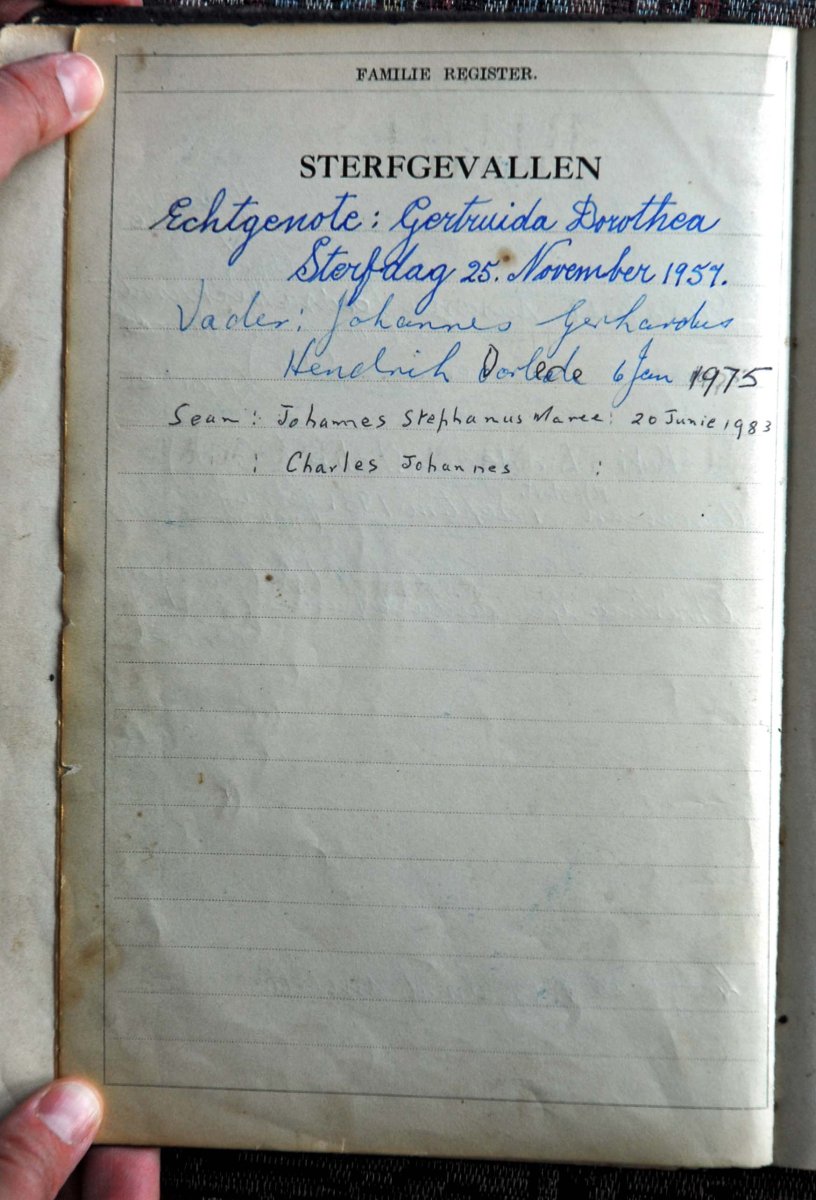 FAMILIE REGISTER.
STERFGEVALLEN
Echtgenote: Gertruida Dorothea
Sterfdag 25. November 1957.
Vader: Johannes Gerhardus
Hendrik Oorlede 6 Jan 1975
Seun: Johannes Stephanus Maree: 20 Junie 1983
: Charles Johannes :